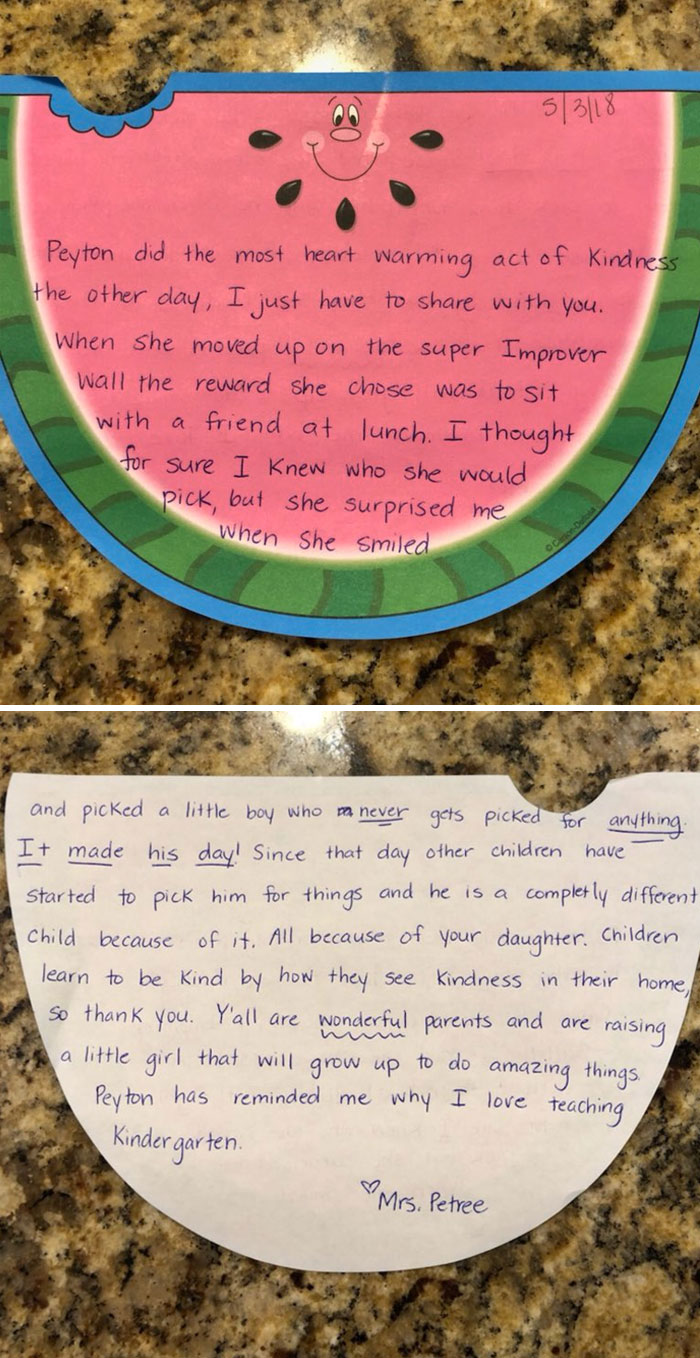 5/3/18
Peyton did the most heart warming act of Kindness
the other day, I just have to share with you.
When she moved up on the super Improver
Wall the reward she chose was to sit
with a friend at lunch. I thought
for sure I Knew who she would
pick, but she surprised me
when she smiled
© Carson-Dellosa
and picked a little boy who never gets picked for anything.
It made his day! Since that day other children have
started to pick him for things and he is a completly different
child because of it. All because of your daughter. Children
learn to be Kind by how they see Kindness in their home,
so thank you. Y'all are wonderful parents and are raising
a little girl that will grow up to do amazing things.
Peyton has reminded me why I love teaching
Kindergarten.
♡Mrs. Petree